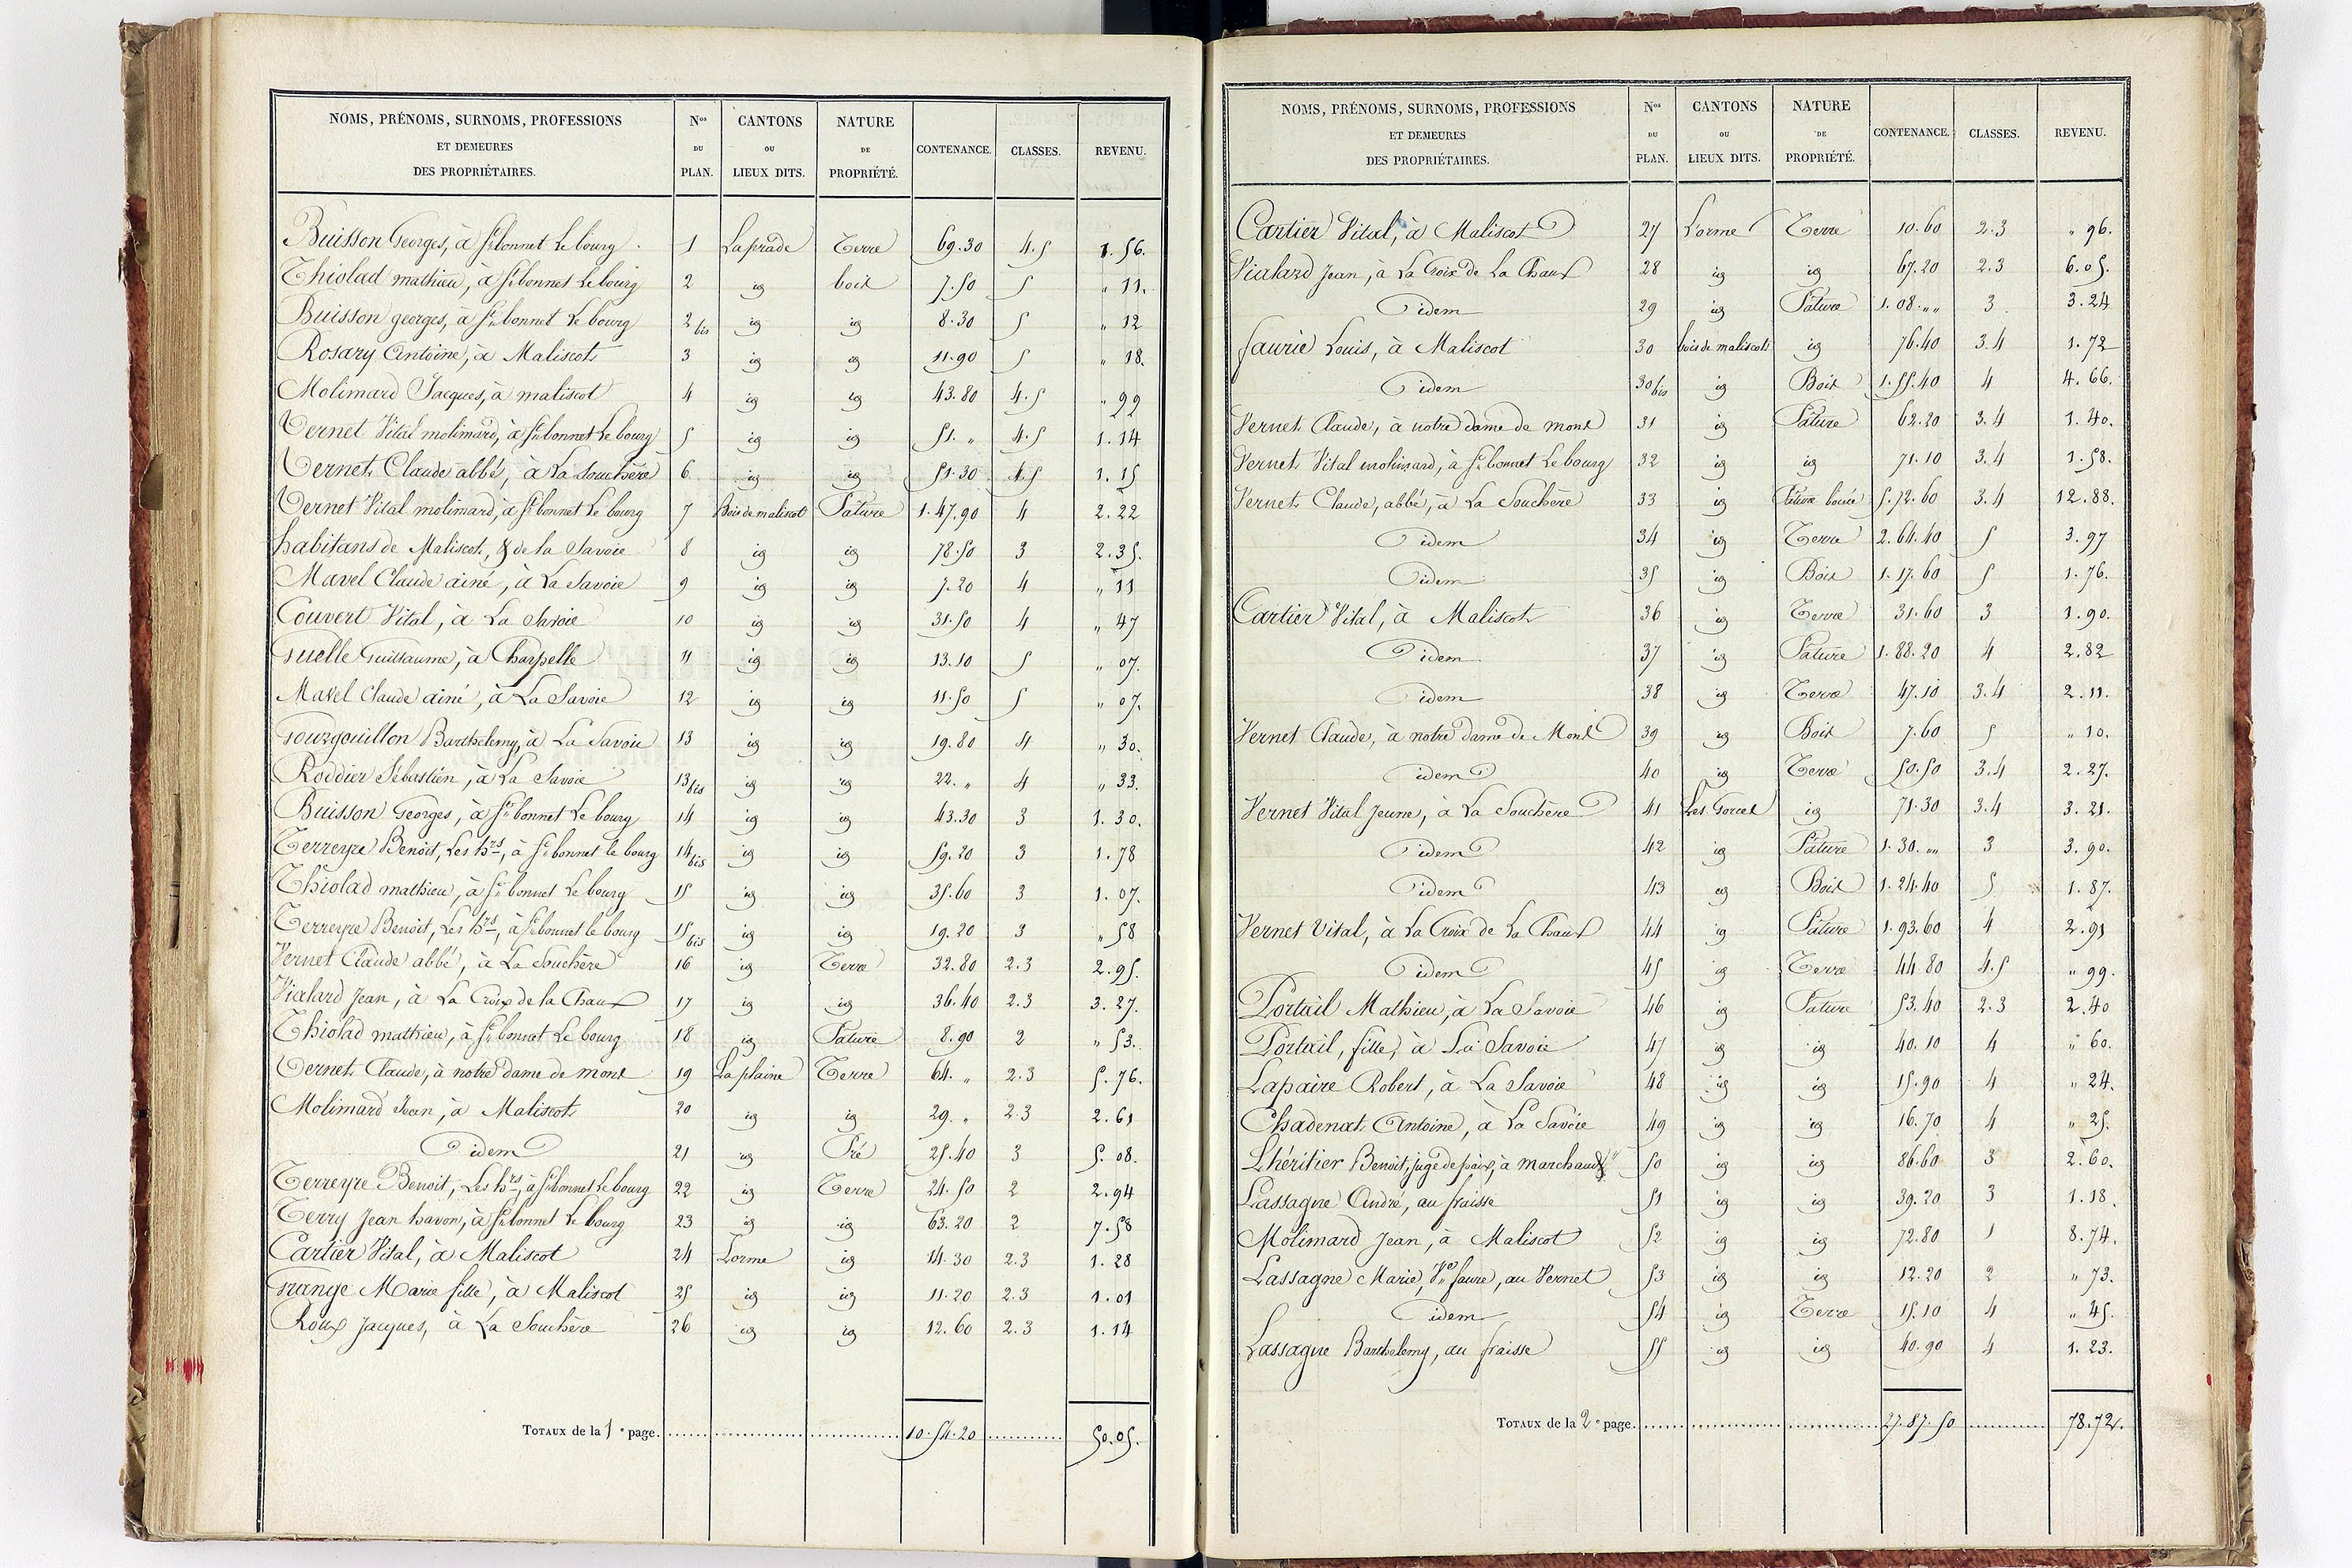 NOMS, PRÉNOMS, SURNOMS, PROFESSIONS ET DEMEURES DES PROPRIÉTAIRES. Nos DU PLAN. CANTONS OU LIEUX DITS. NATURE DE PROPRIÉTÉ. CONTENANCE. CLASSES. REVENU.
Buisson Georges, à St bonnet Le bourg 1 Laprade Terre 69.30 4.5 1.56.
Thiolad mathieu, à St bonnet Le bourg 2 id bois 7.50 5 " 11.
Buisson georges, à St bonnet Le bourg 2 bis id id 8.30 5 " 12
Rosary Antoine, à Maliscot 3 id id 11.90 5 " 18.
Molimard Jacques, à maliscot 4 id id 43.80 4.5 " 99
Vernet Vital molimard, à St bonnet Le bourg 5 id id 51. " 4.5 1.14
Vernet Claude abbé, à La Souchère 6 id id 51.30 4.5 1.15
Vernet Vital molimard, à St bonnet Le bourg 7 Bois de maliscot Pature 1.47.90 4 2.22
habitans de Maliscot, & de la Savoie 8 id id 78.50 3 2.35.
Mavel Claude ainé, à La Savoie 9 id id 7.20 4 " 11
Couvert Vital, à La Savoie 10 id id 31.50 4 " 47
Guelle Guillaume, à Charpelle 11 id id 13.10 5 " 07.
Mavel Claude ainé, à La Savoie 12 id id 11.50 5 " 07.
Gourgouillon Barthelemy, à La Savoie 13 id id 19.80 4 " 30.
Roddier Sébastien, à La Savoie 13 bis id id 22. " 4 " 33.
Buisson Georges, à St bonnet Le bourg 14 id id 43.30 3 1.30.
Terreyre Benoit, Les hrs, à St bonnet le bourg 14 bis id id 59.20 3 1.78
Thiolad mathieu, à St bonnet Le bourg 15 id id 35.60 3 1.07.
Terreyre Benoit, Les hrs, à St bonnet le bourg 15 bis id id 19.20 3 " 58
Vernet Claude abbé, à La Souchère 16 id Terre 32.80 2.3 2.95.
Vialard Jean, à La Croix de la Chaux 17 id id 36.40 2.3 3.27.
Thiolad mathieu, à St bonnet Le bourg 18 id Pature 8.90 2 " 53.
Vernet Claude, à notre dame de mons 19 La plaine Terre 64. " 2.3 5.76.
Molimard Jean, à Maliscot 20 id id 29. " 2.3 2.61
idem 21 id Pré 25.40 3 5.08.
Terreyre Benoit, Les hrs, à St bonnet Le bourg 22 id Terre 24.50 2 2.94
Terry Jean havon, à St bonnet Le bourg 23 id id 63.20 2 7.58
Cartier Vital, à Maliscot 24 Lorme id 14.30 2.3 1.28
Grange Marie fille, à Maliscot 25 id id 11.20 2.3 1.01
Roux Jacques, à La Souchère 26 id id 12.60 2.3 1.14
TOTAUX de la 1e page. 10.54.20 50.05.
NOMS, PRÉNOMS, SURNOMS, PROFESSIONS ET DEMEURES DES PROPRIÉTAIRES. Nos DU PLAN. CANTONS OU LIEUX DITS. NATURE DE PROPRIÉTÉ. CONTENANCE. CLASSES. REVENU.
Cartier Vital, à Maliscot 27 Lorme Terre 10.60 2.3 " 96.
Vialard Jean, à La Croix de La Chaux 28 id id 67.20 2.3 6.05.
idem 29 id Pature 1.08. "" 3 3.24
faurie Louis, à Maliscot 30 bois de maliscot id 76.40 3.4 1.72
idem 30 bis id Bois 1.55.40 4 4.66.
Vernet Claude, à notre dame de mons 31 id Pature 62.20 3.4 1.40.
Vernet Vital molimard, à St bonnet Le bourg 32 id id 71.10 3.4 1.58.
Vernet Claude, abbé, à La Souchère 33 id Pature boisée 5.72.60 3.4 12.88.
idem 34 id Terre 2.64.40 5 3.97
idem 35 id Bois 1.17.60 5 1.76.
Cartier Vital, à Maliscot 36 id Terre 31.60 3 1.90.
idem 37 id Pature 1.88.20 4 2.82
idem 38 id Terre 47.10 3.4 2.11.
Vernet Claude, à notre dame de Mons 39 id Bois 7.60 5 " 10.
idem 40 id Terre 50.50 3.4 2.27.
Vernet Vital Jeune, à La Souchère 41 Les Gorces id 71.30 3.4 3.21.
idem 42 id Pature 1.30. "" 3 3.90.
idem 43 id Bois 1.24.40 5 1.87.
Vernet Vital, à La Croix de La Chaux 44 id Pature 1.93.60 4 2.91
idem 45 id Terre 44.80 4.5 " 99.
Portail Mathieu, à La Savoie 46 id Pature 53.40 2.3 2.40
Portail, fille, à La Savoie 47 id id 40.10 4 " 60.
Lapaire Robert, à La Savoie 48 id id 15.90 4 " 24.
Chadenat Antoine, à La Savoie 49 id id 16.70 4 " 25.
Lhéritier Benoit, juge de paix, à marchaud 50 id id 86.60 3 2.60.
Lassagne André, au fraisse 51 id id 39.20 3 1.18.
Molimard Jean, à Maliscot 52 id id 72.80 1 8.74.
Lassagne Marie, Ve faure, au Vernet 53 id id 12.20 2 " 73.
idem 54 id Terre 15.10 4 " 45.
Lassagne Barthelemy, au fraisse 55 id id 40.90 4 1.23.
TOTAUX de la 2e page. 27.87.50 78.72.